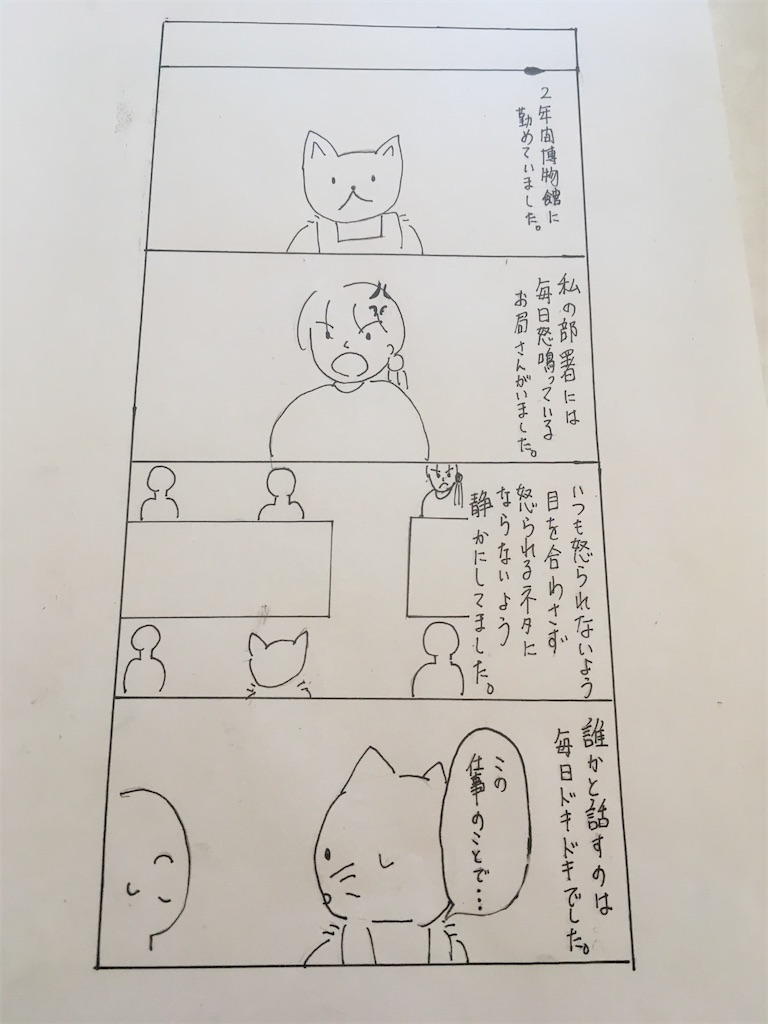 2年間博物館に
勤めていました。
私の部署には
毎日怒鳴っている
お局さんがいました。
いつも怒られないよう
目を合わさず
怒られるネタに
ならないよう
静かにしてました。
誰かと話すのは
毎日ドキドキでした。
この
仕事のことで・・・